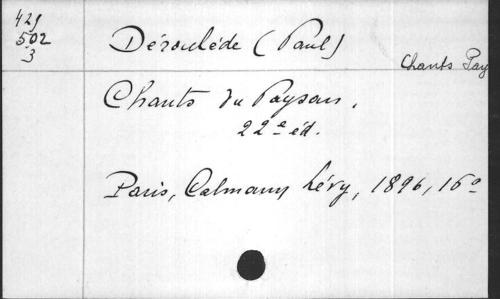 429
502
3
Déroulède (Paul)
Chants Pay
Chants du Paysan.
22e éd.
Paris, Calmann Lévy, 1896, 16o